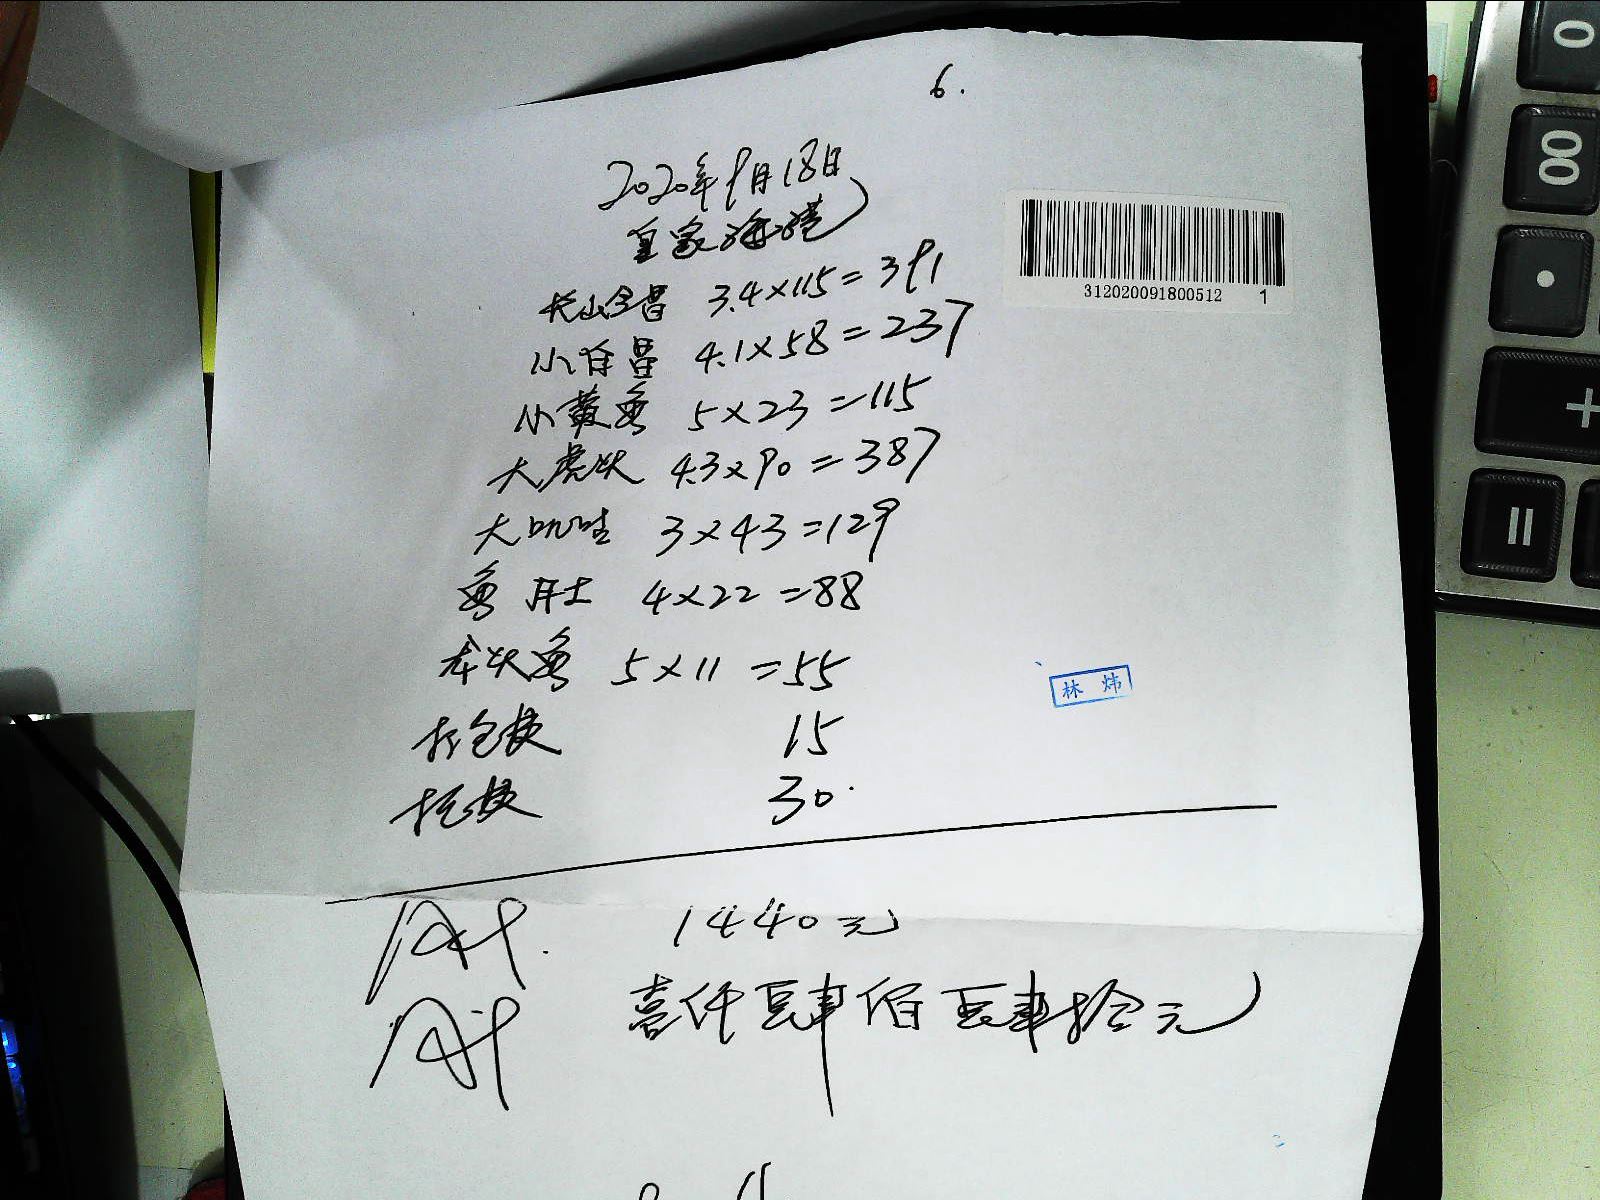 6.
2020年9月18日
皇家海港
大山全昌 3.4×115=391
小白昌 4.1×58=237
小黄鱼 5×23=115
大虎头 4.3×90=387
大叽哇 3×43=129
鱼肚 4×22=88
龙头鱼 5×11=55
打包快 15
托快 30.
1440元
壹仟肆佰肆拾元
312020091800512 1
林炜
0
00
+
=